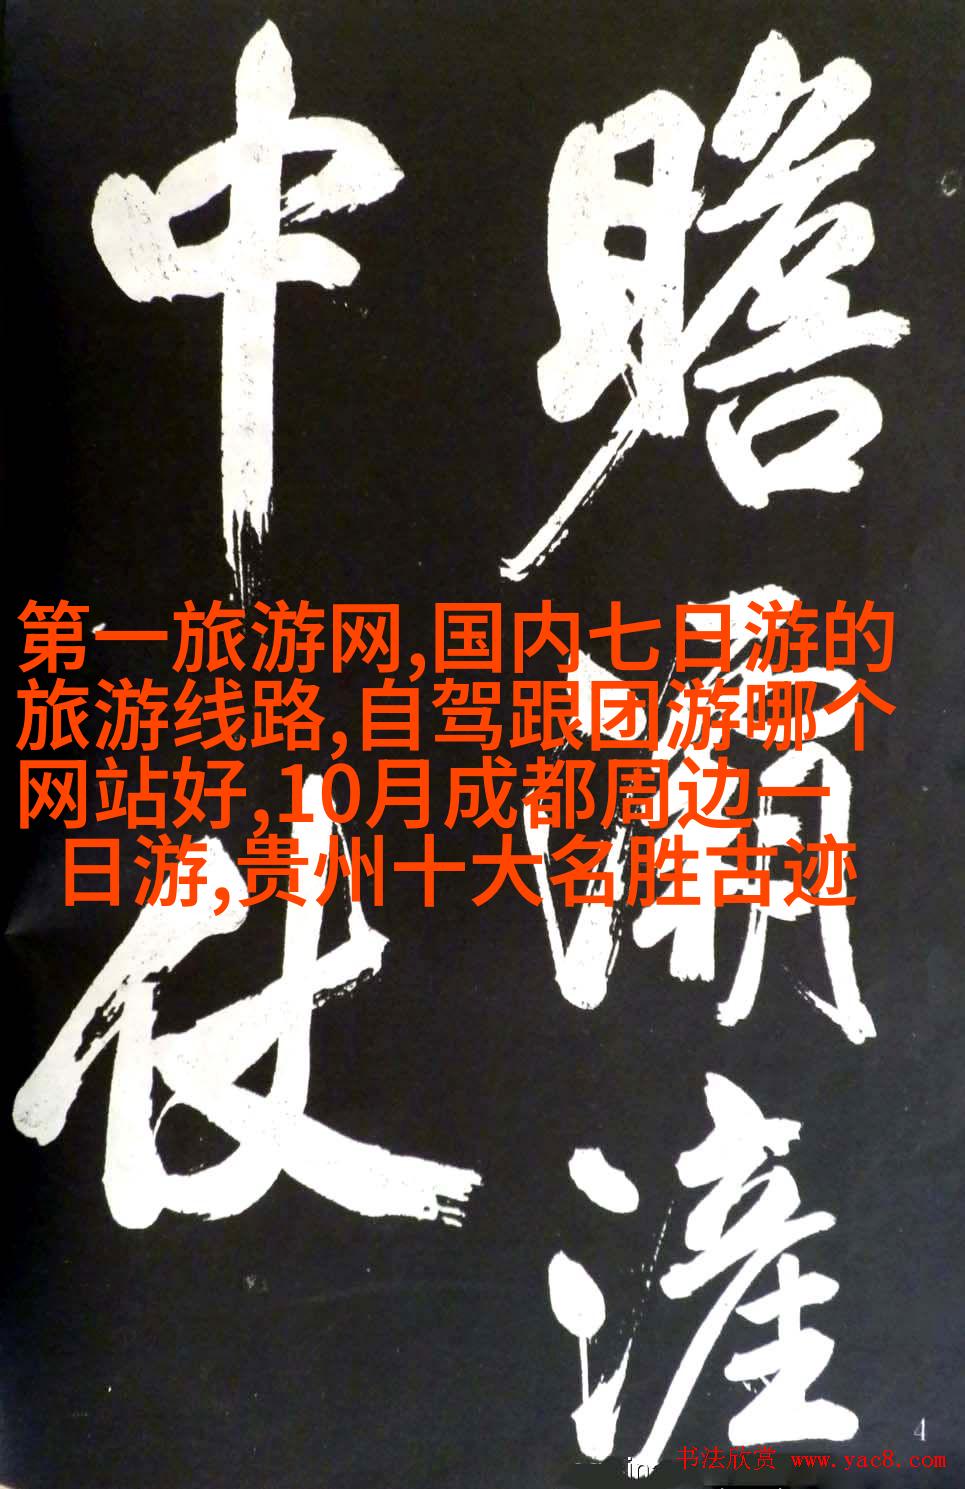 瞻
滻
中
仗
第一旅游网,国内七日游的
旅游线路,自驾跟团游哪个
网站好,10月成都周边一
日游,贵州十大名胜古迹
4
书法欣赏 www.yac8.com